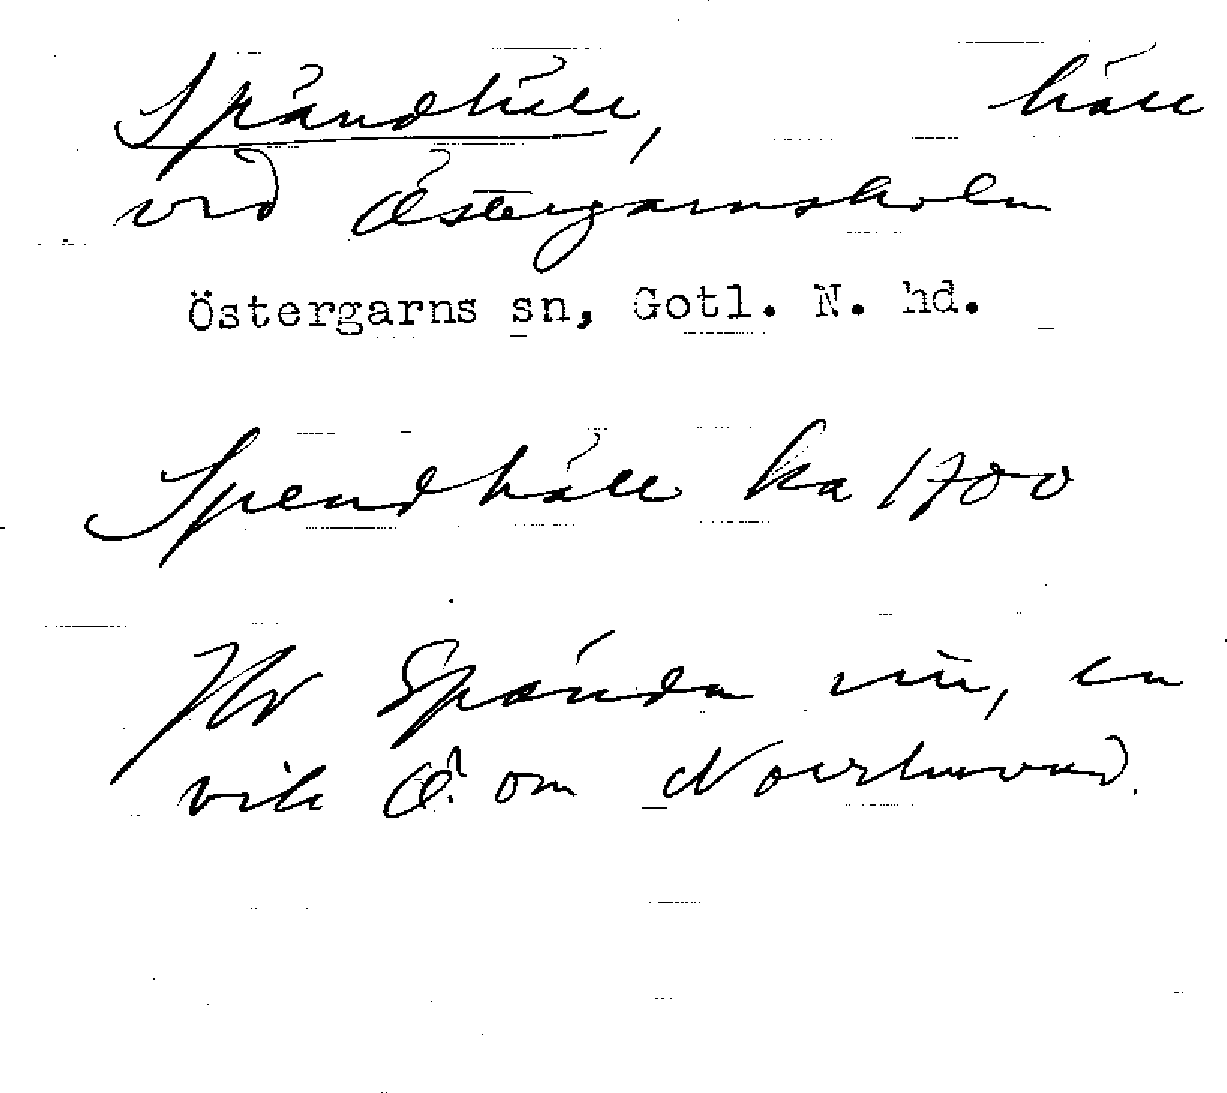 Spändhäll, häll
vid Östergarnsholm
Östergarns sn, Gotl. N. hd.
Spendhäll ka 1700
Jfr Spända vik, en
vik Ö. om Norrhuvud.